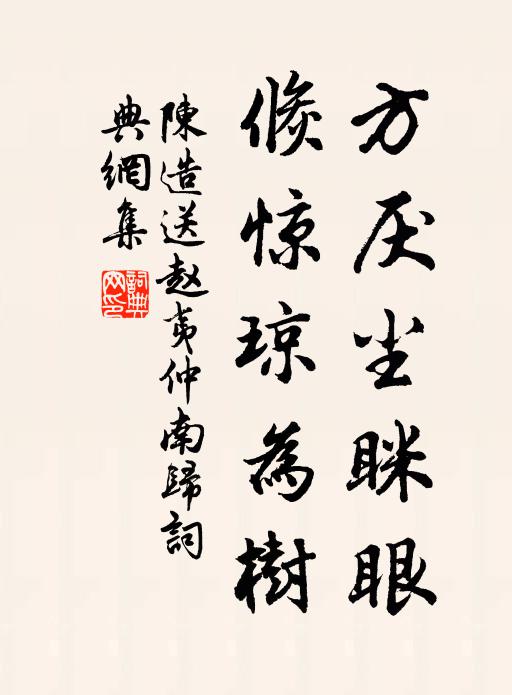 方厌尘眯眼
倏惊琼為樹
陳造送赵夷仲南歸詞
典網集
詞典网印